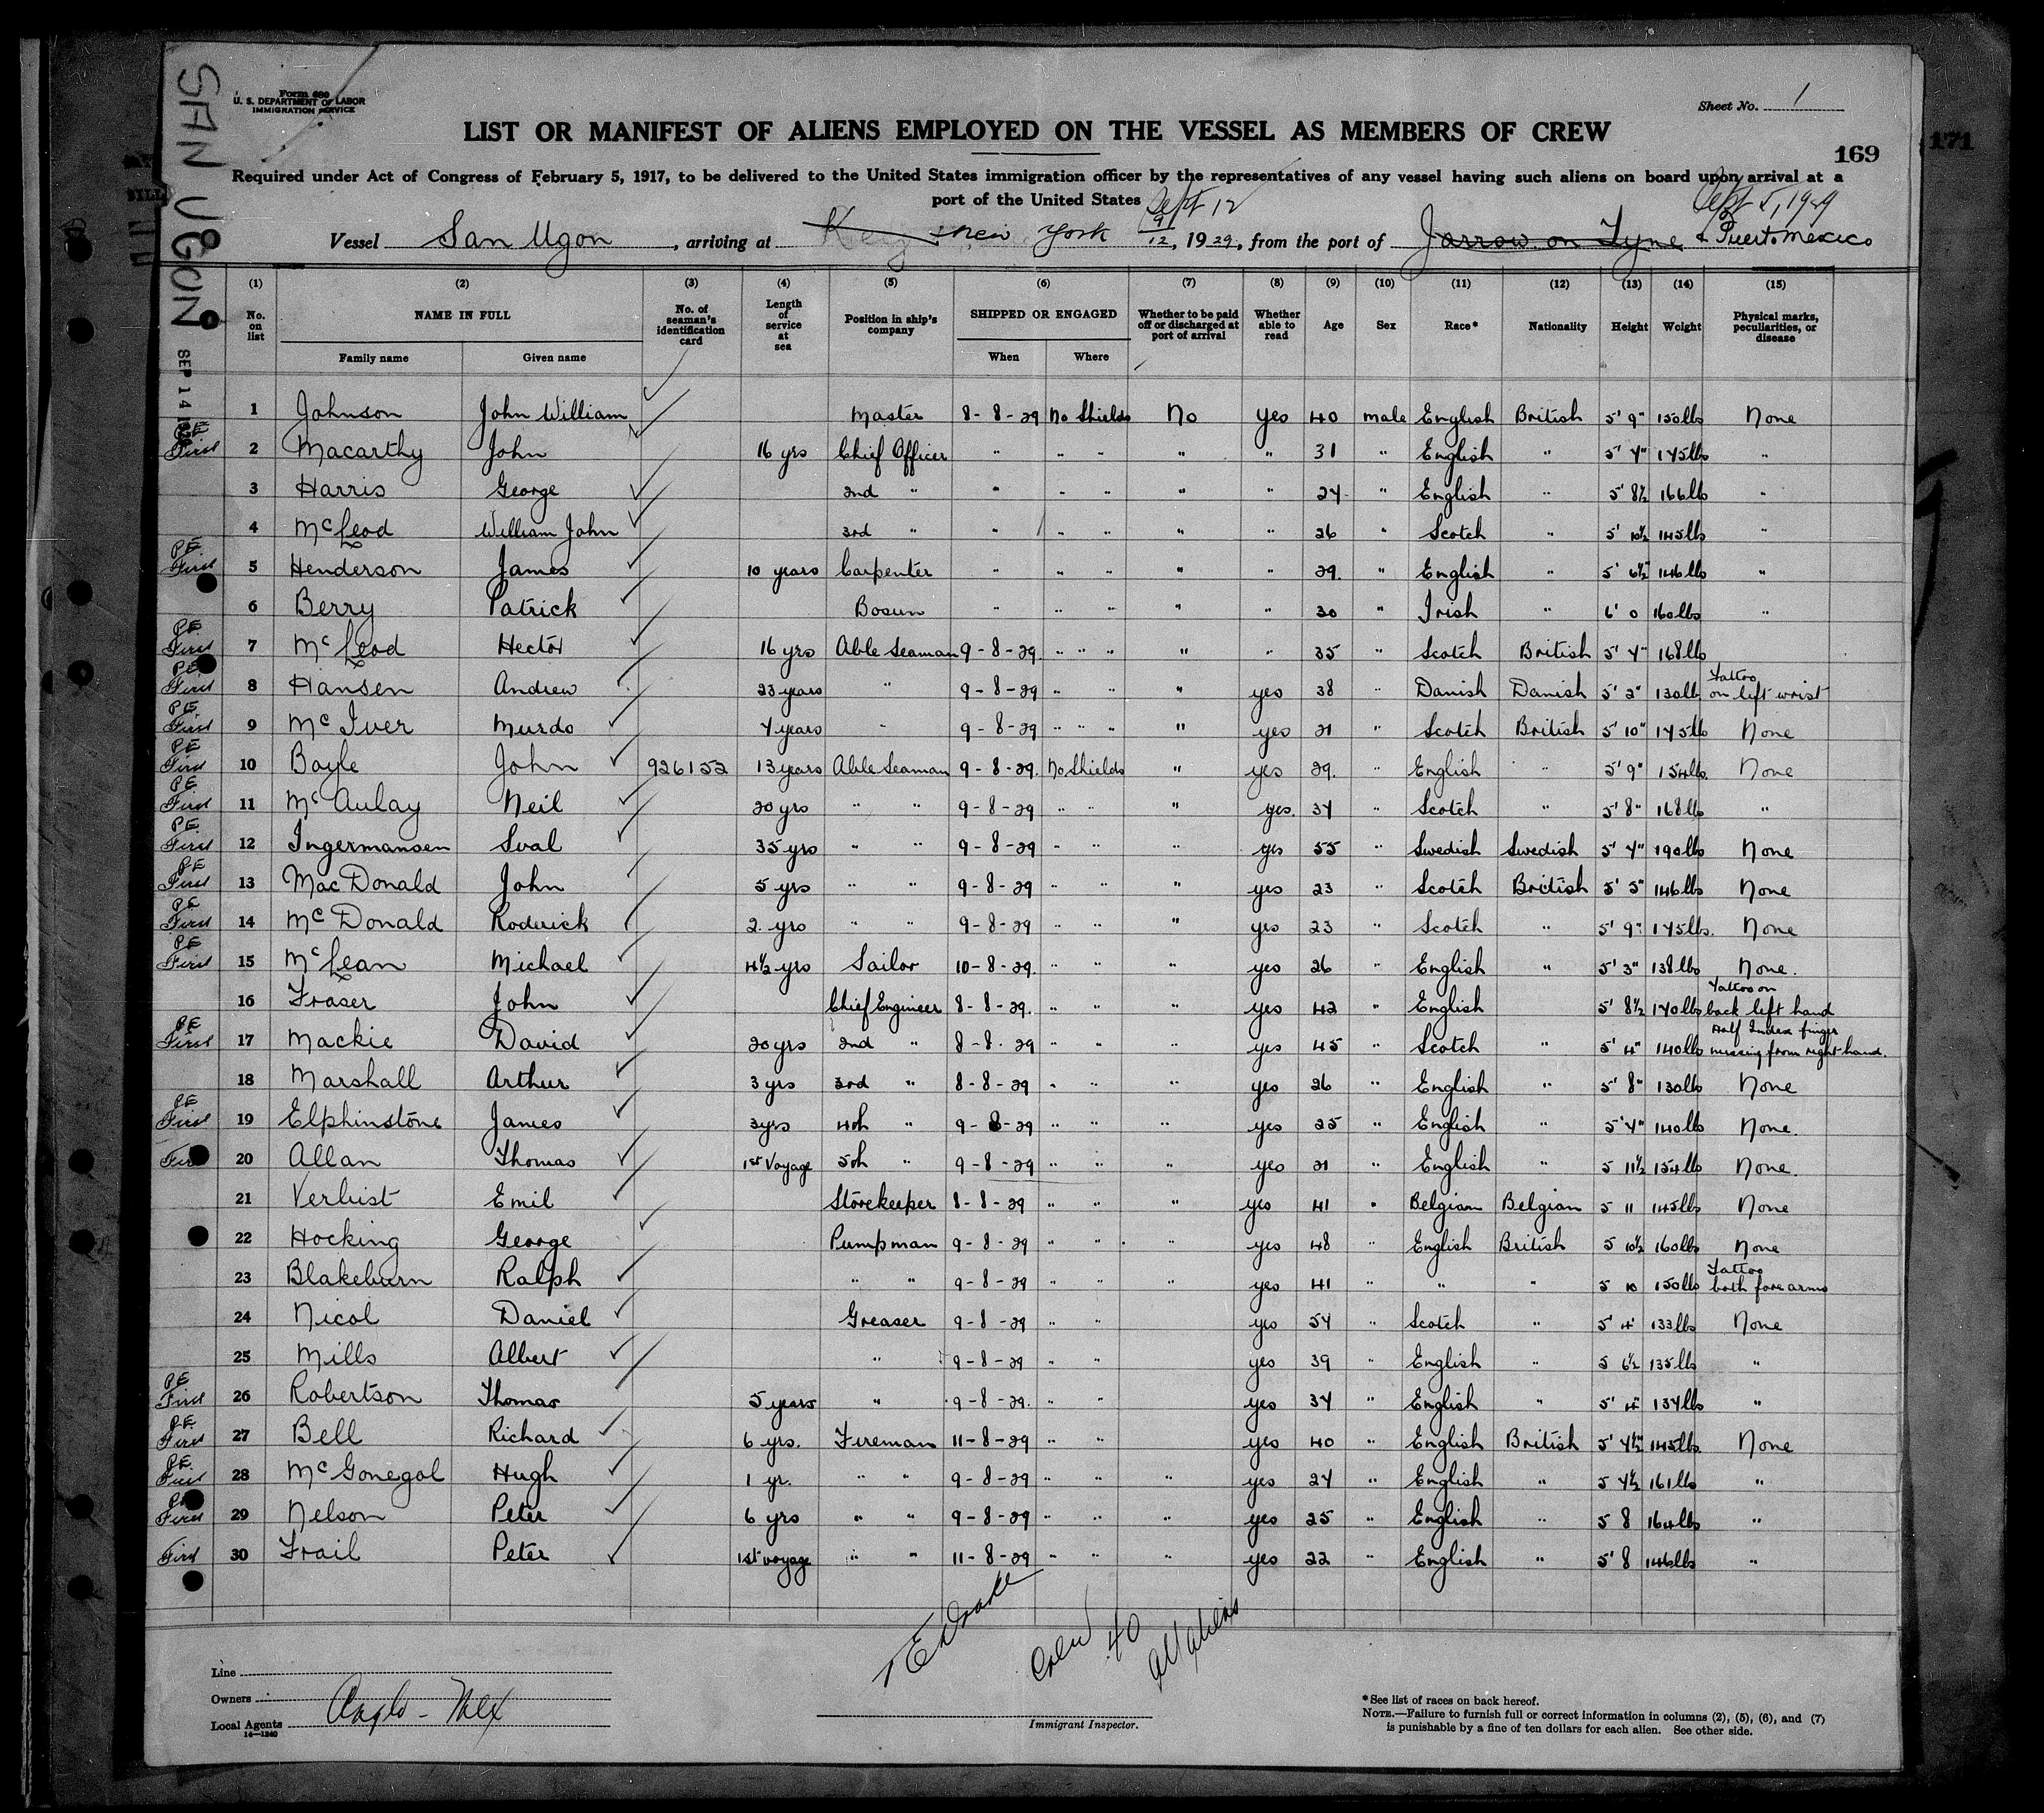 SAN UGON
SEP 14
Form 680
U. S. DEPARTMENT OF LABOR
IMMIGRATION SERVICE
Sheet No. 1
LIST OR MANIFEST OF ALIENS EMPLOYED ON THE VESSEL AS MEMBERS OF CREW
169
171
Required under Act of Congress of February 5, 1917, to be delivered to the United States immigration officer by the representatives of any vessel having such aliens on board upon arrival at a
port of the United States
Sept 12
Sept 5, 1929
Vessel San Ugon, arriving at New York 9/12, 1929, from the port of Jarrow on Tyne & Puerto Mexico
(1) (2) (3) (4) (5) (6) (7) (8) (9) (10) (11) (12) (13) (14) (15)
No. on list NAME IN FULL No. of seaman's identification card Length of service at sea Position in ship's company SHIPPED OR ENGAGED Whether to be paid off or discharged at port of arrival Whether able to read Age Sex Race* Nationality Height Weight Physical marks, peculiarities, or disease
Family name Given name When Where
1 Johnson John William Master 8-8-29 No Shields No yes 40 male English British 5' 9" 150lbs None
PE First 2 Macarthy John 16 yrs Chief Officer " " " " " 31 " English " 5' 4" 145lbs "
3 Harris George 2nd " " " " " " 24 " English " 5' 8½ 166lbs "
4 McLeod William John 3rd " " " " " " 26 " Scotch " 5' 10½ 145lb "
PE First 5 Henderson James 10 years Carpenter " " " " " 29. " English " 5' 6½" 146lb "
6 Berry Patrick Bosun " " " " " 30 " Irish " 6' 0 160lbs "
PE First 7 McLeod Hector 16 yrs Able Seaman 9-8-29. " " " " " 35 " Scotch British 5' 4" 168lb
PE First 8 Hansen Andrew 23 years " 9-8-29 " " " yes 38 " Danish Danish 5' 2" 130lb Tattoo on left wrist
PE First 9 McIver Murdo 4 years " 9-8-29 " " " " yes 21 " Scotch British 5' 10" 145lb None
PE First 10 Boyle John 926152 13 years Able Seaman 9-8-29. No Shields " yes 29. " English " 5' 9" 154lb. None
PE First 11 McAulay Neil 20 yrs " " 9-8-29 " " " yes. 34 " Scotch " 5' 8" 168lb "
PE First 12 Ingermansen Sval 35 yrs " " 9-8-29 " " " yes 55 " Swedish Swedish 5' 4" 190lb None
PE First 13 MacDonald John 5 yrs " " 9-8-29 " " " yes 23 " Scotch British 5' 5" 146lb None
PE First 14 McDonald Roderick 2. yrs " " 9-8-29 " " " yes 23 " Scotch " 5' 9" 145lbs. None
PE First 15 McLean Michael 4½ yrs Sailor 10-8-29. " " " yes 26 " English " 5' 3" 138lbs None.
16 Fraser John Chief Engineer 8-8-29. " " " yes 42 " English " 5' 8½ 140lbs Tattoo on back left hand
PE First 17 Mackie David 20 yrs 2nd " 8-8-29 " " " yes 45 " Scotch " 5' 4" 140lb Half Index finger missing from right hand.
18 Marshall Arthur 3 yrs 3rd " 8-8-29 " " " yes 26 " English " 5' 8" 130lb None
PE First 19 Elphinstone James 3yrs 4th " 9-8-29 " " " yes 25 " English " 5' 4" 140lb None.
First 20 Allan Thomas 1st Voyage 5th " 9-8-29 " " " yes 21 " English " 5 11½ 154lb None.
21 Verhist Emil Storekeeper 8-8-29 " " " yes 41 " Belgian Belgian 5 11 145lb None
22 Hocking George Pumpman 9-8-29 " " " yes 48 " English British 5 10½ 160lb None
23 Blakeburn Ralph " " 9-8-29 " " " yes 41 " " " 5 10 150lb Tattoo both forearms
24 Nicol Daniel Greaser 9-8-29 " " yes 54 " Scotch " 5' 4" 133lb None
25 Mills Albert " 9-8-29 " " yes 39 " English " 5 6½ 135lb "
PE First 26 Robertson Thomas 5 years " 9-8-29. " " yes 34 " English " 5' 4" 134lb "
PE First 27 Bell Richard 6 yrs. Fireman 11-8-29 " " yes 40 " English British 5' 4½" 145lb None
PE First 28 McGonegal Hugh 1 yr. " " 9-8-29 " " " yes 24 " English " 5 4½ 161lb "
PE First 29 Nelson Peter 6 yrs " " 9-8-29 " " " yes 25 " English " 5 8 164lb "
First 30 Frail Peter 1st voyage " " 11-8-29 " " " yes 22 " English " 5' 8 146lb "
Crew 40
all aliens
Line
Owners
Anglo-Mex
Local Agents
14—1240
Immigrant Inspector.
*See list of races on back hereof.
NOTE.—Failure to furnish full or correct information in columns (2), (5), (6), and (7)
is punishable by a fine of ten dollars for each alien. See other side.